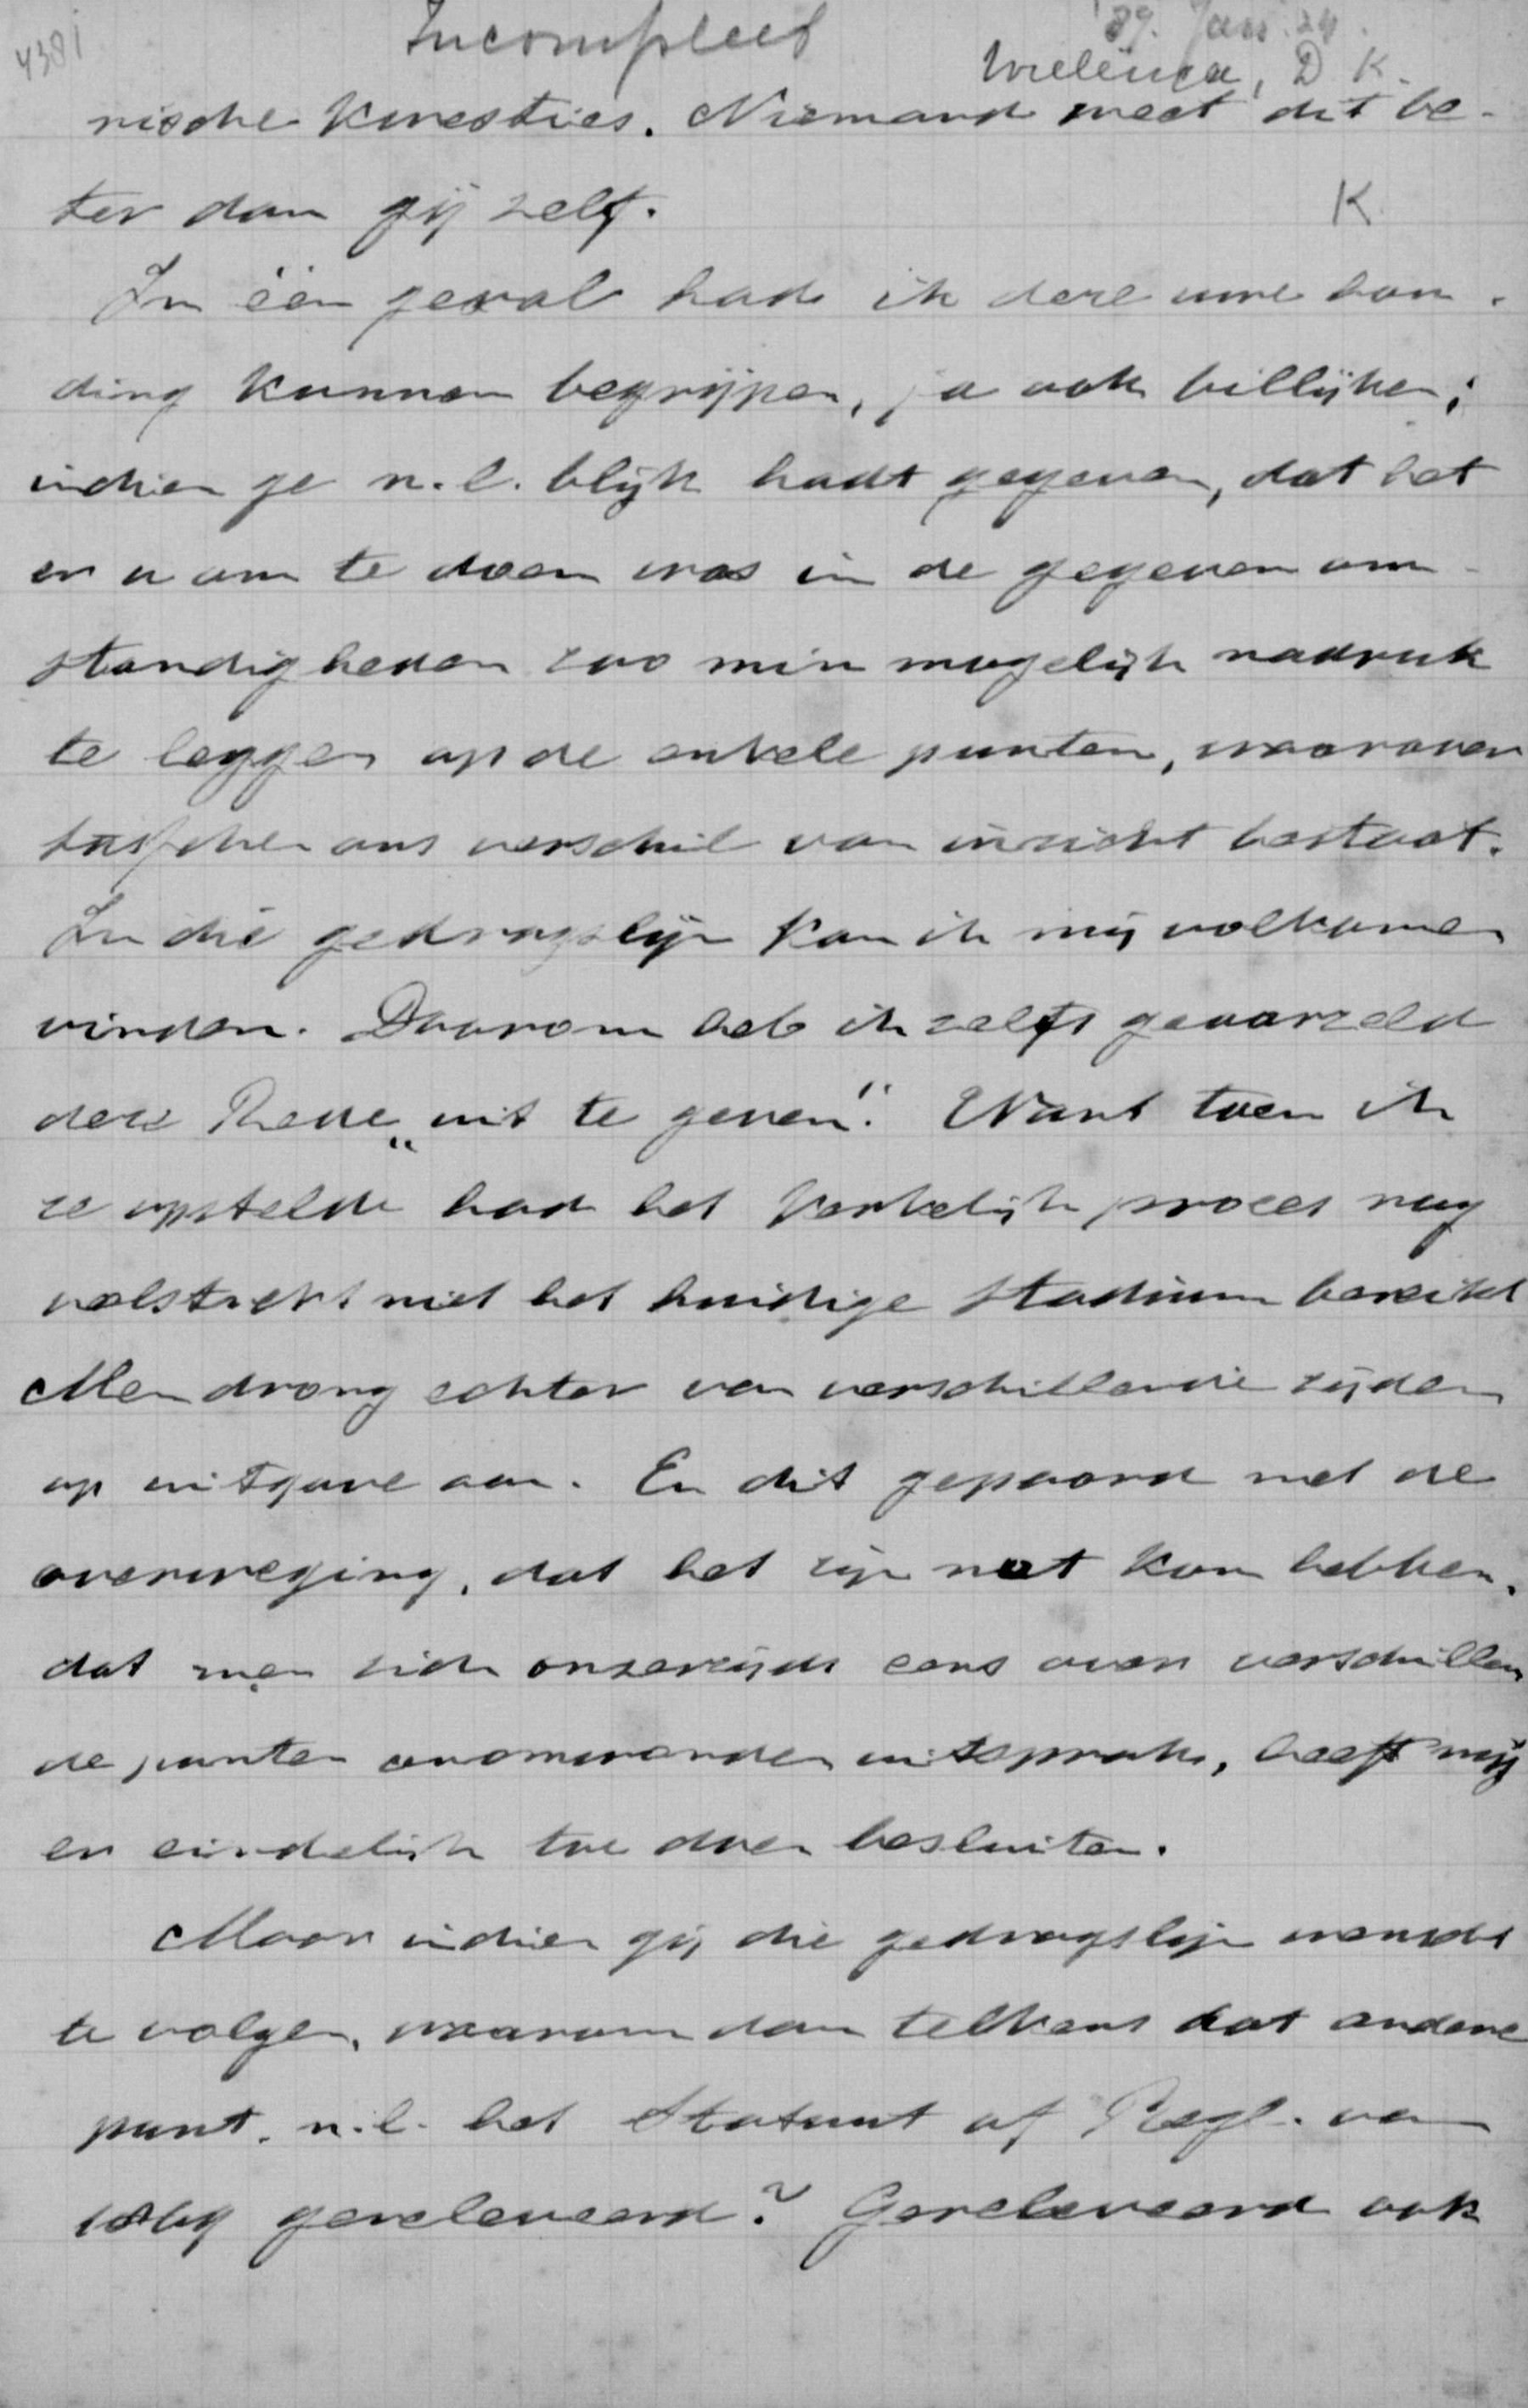 4381
Incompleet
29. Jan. 24.
Wielenga, D. K.
rische kwesties. Niemand weet dit be-
ter dan gij zelf.
K
In één geval had ik deze uwe hou-
ding kunnen begrijpen, ja ook billijken;
indien ge n.l. blijk hadt gegeven, dat het
er u om te doen was in de gegeven om-
standigheden zoo min mogelijk nadruk
te leggen op de enkele punten, waarover
tusschen ons verschil van inzicht bestaat.
In die gedragslijn kan ik mij volkomen
vinden. Daarom heb ik zelfs geaarzeld
deze Rede „uit te geven". Want toen ik
ze opstelde had het kerkelijk proces nog
volstrekt niet het huidige stadium bereikt
Men drong echter van verschillende zijden
op uitgave aan. En dit gepaard met de
overweging, dat het zijn nut kon hebben,
dat men zich onzerzijds eens over verschillen
de punten onomwonden uitsprak, heeft mij
er eindelijk toe doen besluiten.
Maar indien gij die gedragslijn wenscht
te volgen, waarom dan telkens dat andere
punt, n.l. het Statuut of Regl. van
gereleveerd? Gereleveerd ook